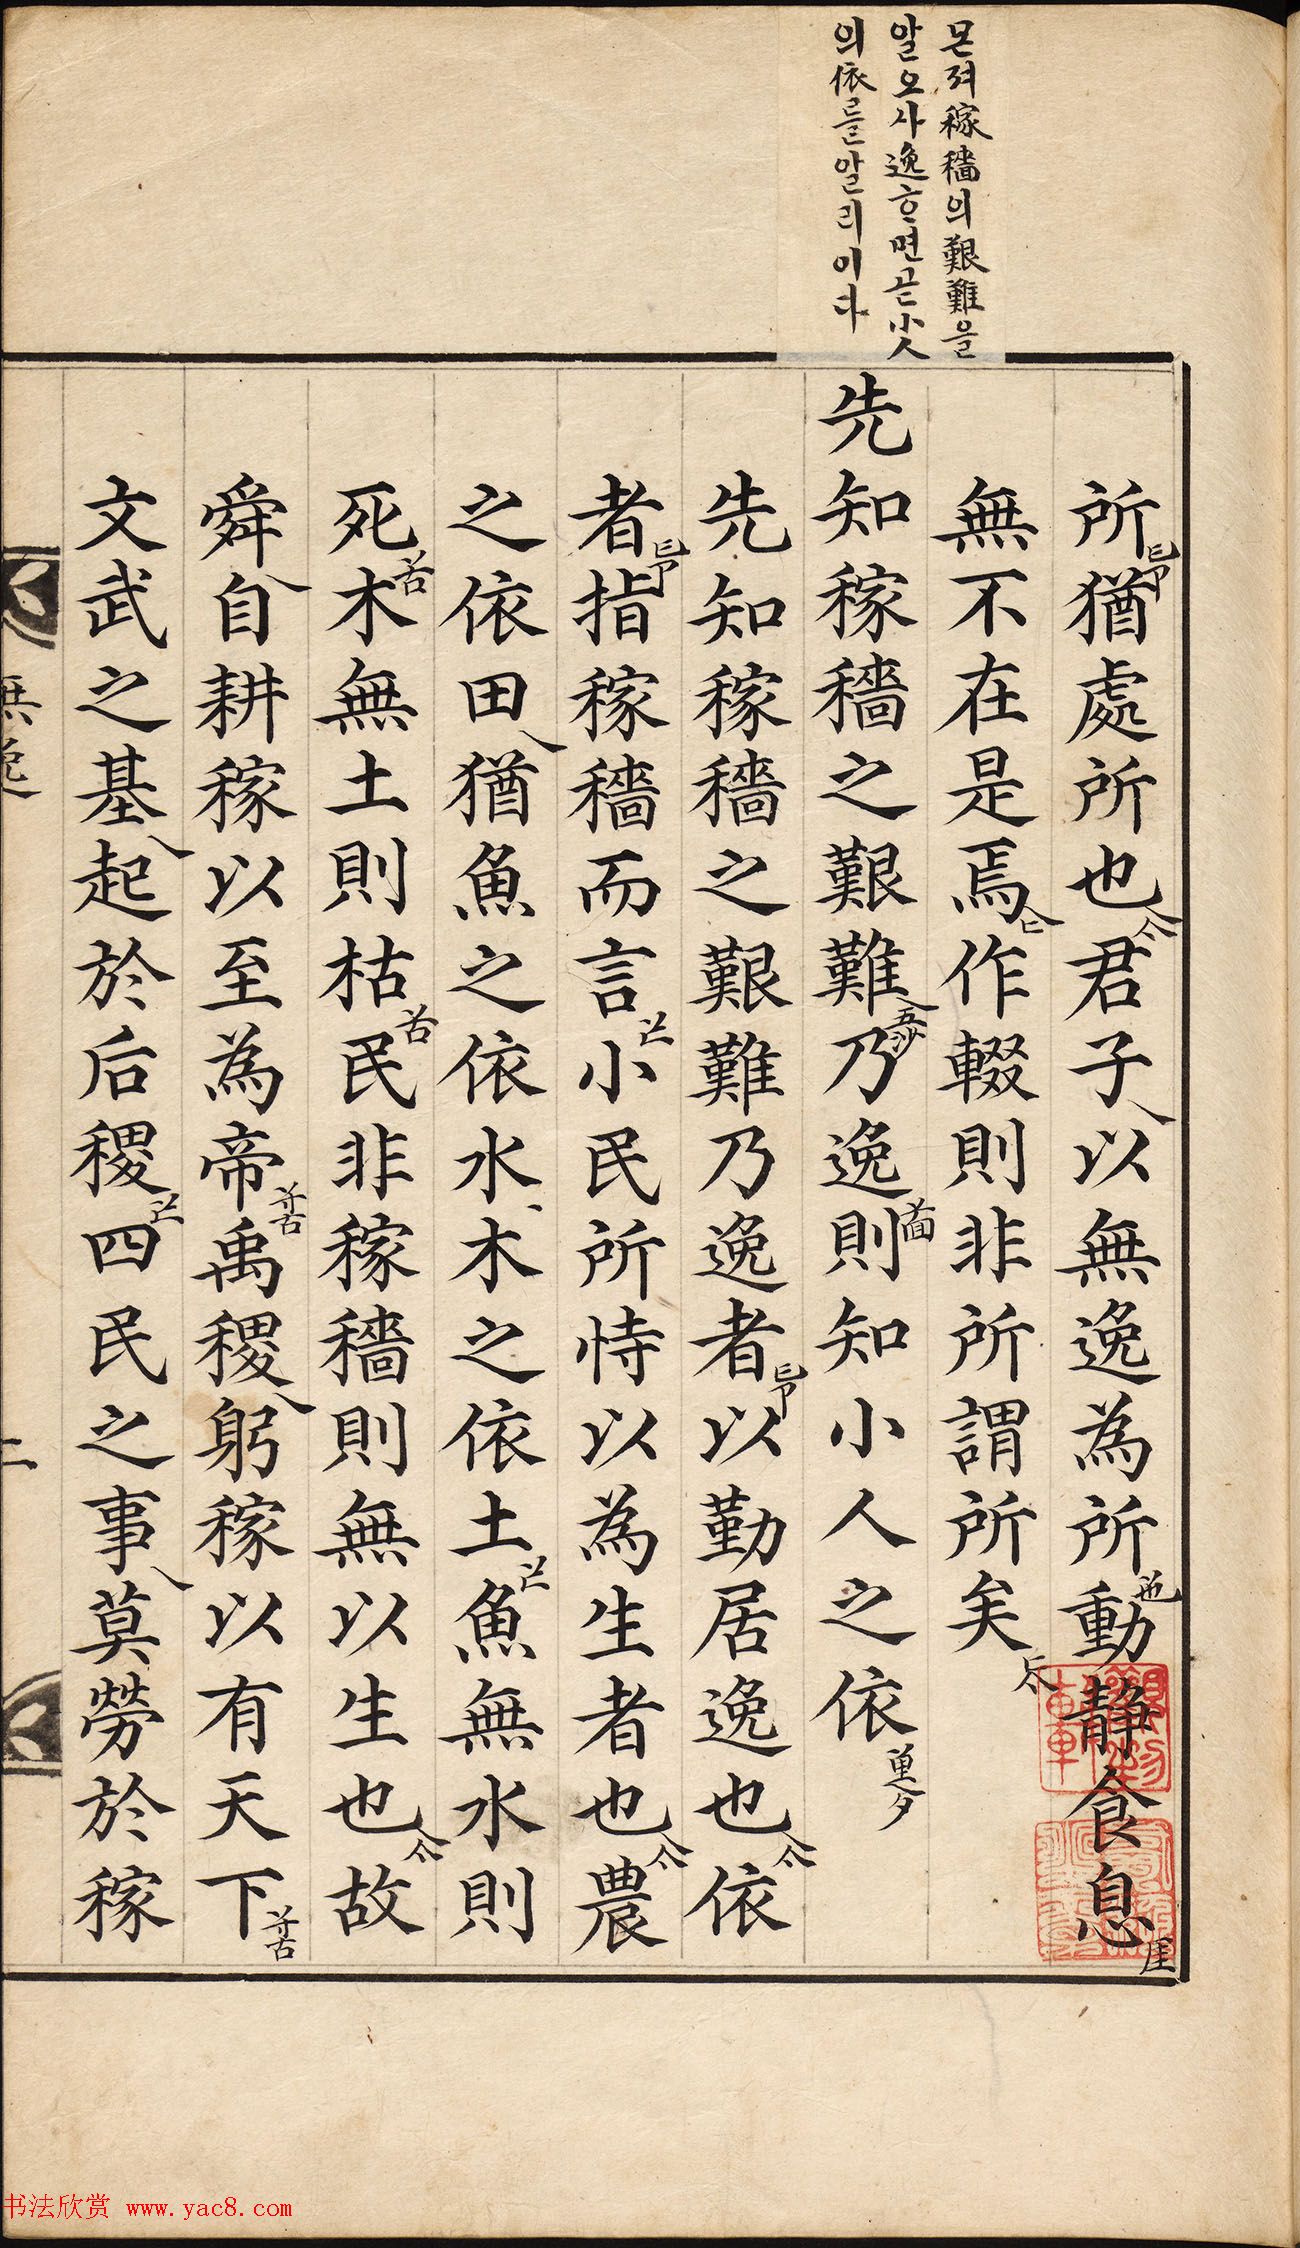 몬져稼穡의艱難을
알오사逸ᄒᆞ면곧小人
의依를알리이다
所猶處所也君子以無逸為所動静食息
無不在是焉作輟則非所謂所矣
先知稼穡之艱難乃逸則知小人之依
先知稼穡之艱難乃逸者以勤居逸也依
者指稼穡而言小民所恃以為生者也農
之依田猶魚之依水木之依土魚無水則
死木無土則枯民非稼穡則無以生也故
舜自耕稼以至為帝禹稷躬稼以有天下
文武之基起於后稷四民之事莫勞於稼
無逸
二
书法欣赏 www.yac8.com